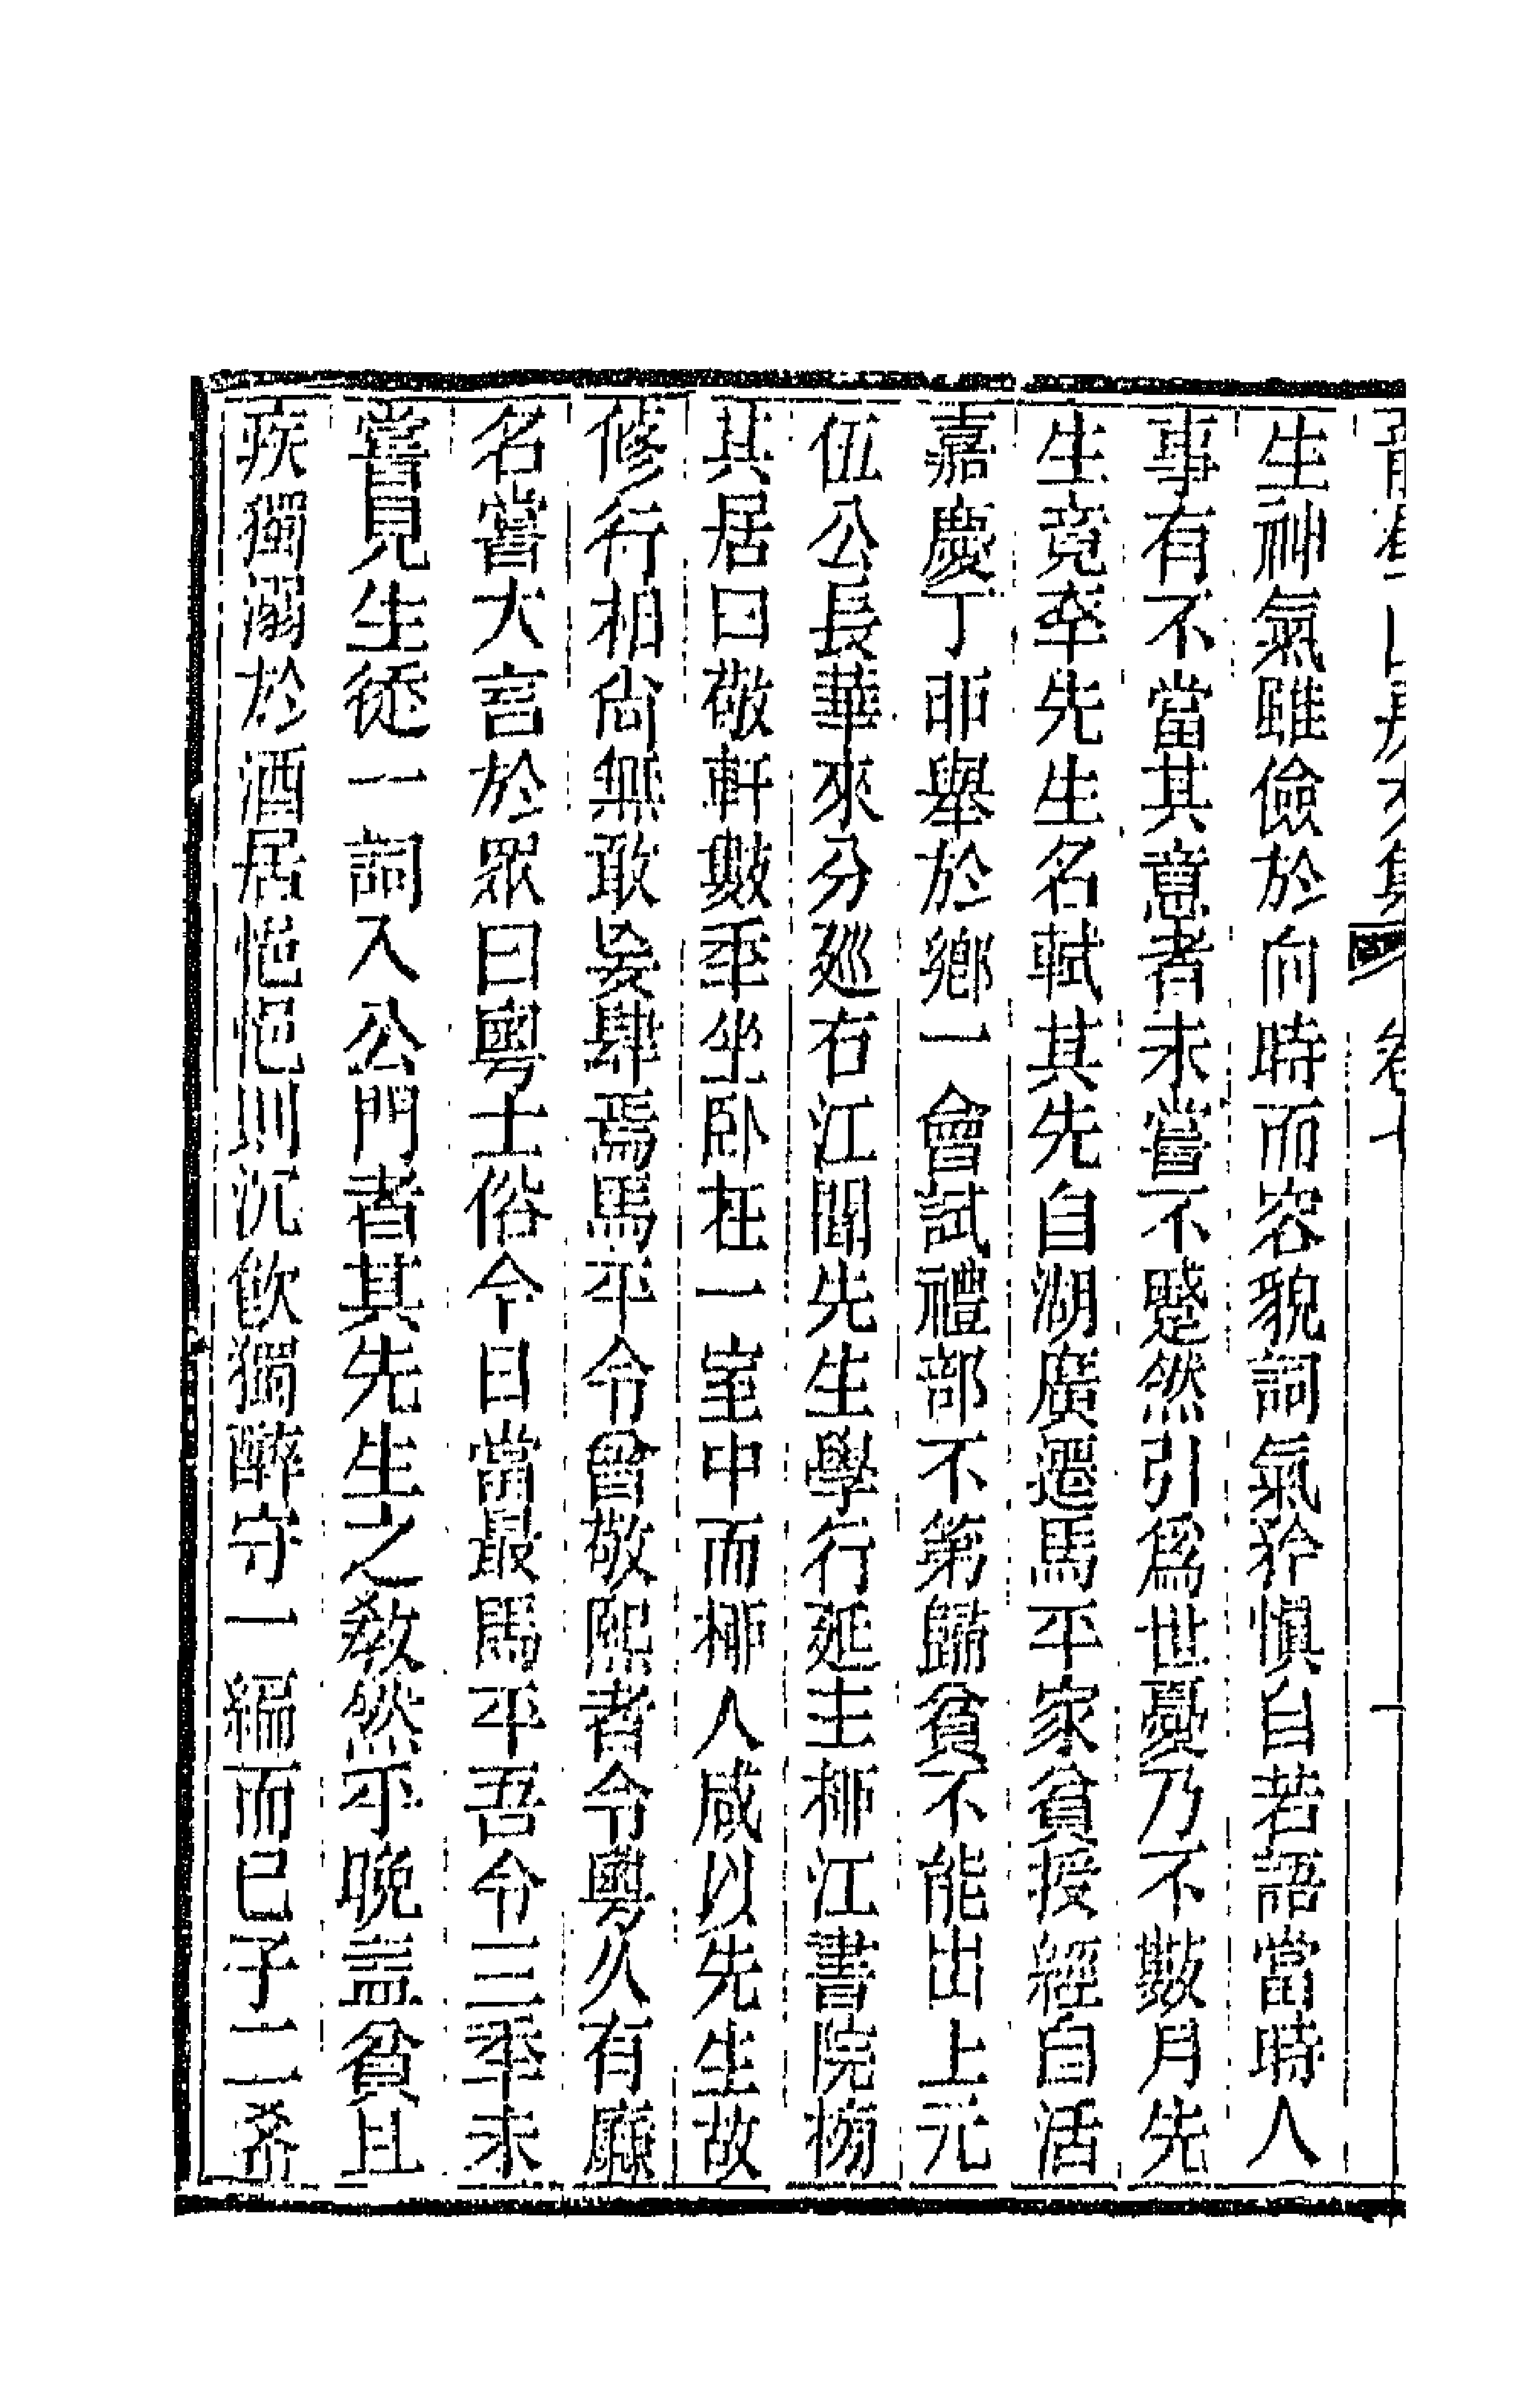 生神氣雖儉於向時而容貌詞氣矜慎自若語當時人
事有不當其意者未嘗不蹙然引爲世憂乃不數月先
生竟卒先生名軾其先自湖廣遷馬平家貧授經自活
嘉慶丁卯舉於鄉一會試禮部不第歸貧不能出上元
伍公長華來分廵右江聞先生學行延主栁江書院榜
其居曰敬軒數秊坐卧在一室中而栁人咸以先生故
修行相尙無敢妄肆焉馬平令曾敬熙者令粵久有廉
名嘗大言於眾曰粵士俗今日當最馬平吾令三秊未
嘗見生徒一詞入公門者其先生之敎然乎晚益貧且
疾獨溺於酒居悒悒則沉飮獨醉守一編而已子二